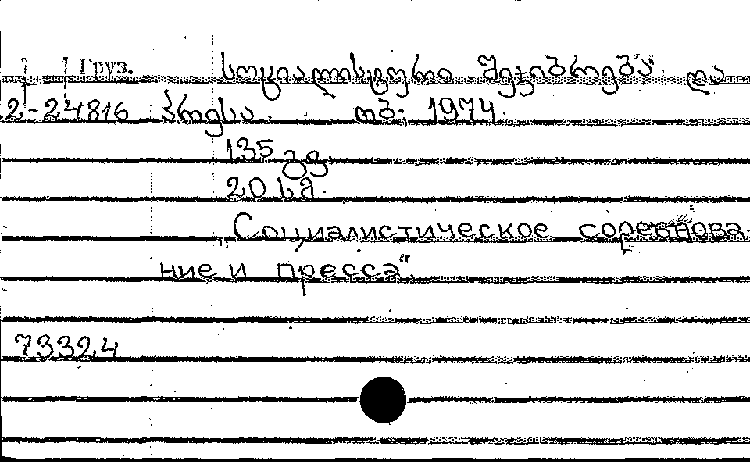 Груз. სოციალისტური შეჯიბრება და
2-24816 პრესა. თბ. 1974.
135 გვ.
20 სმ.
„Социалистическое соревнова
ние и пресса“.
73324